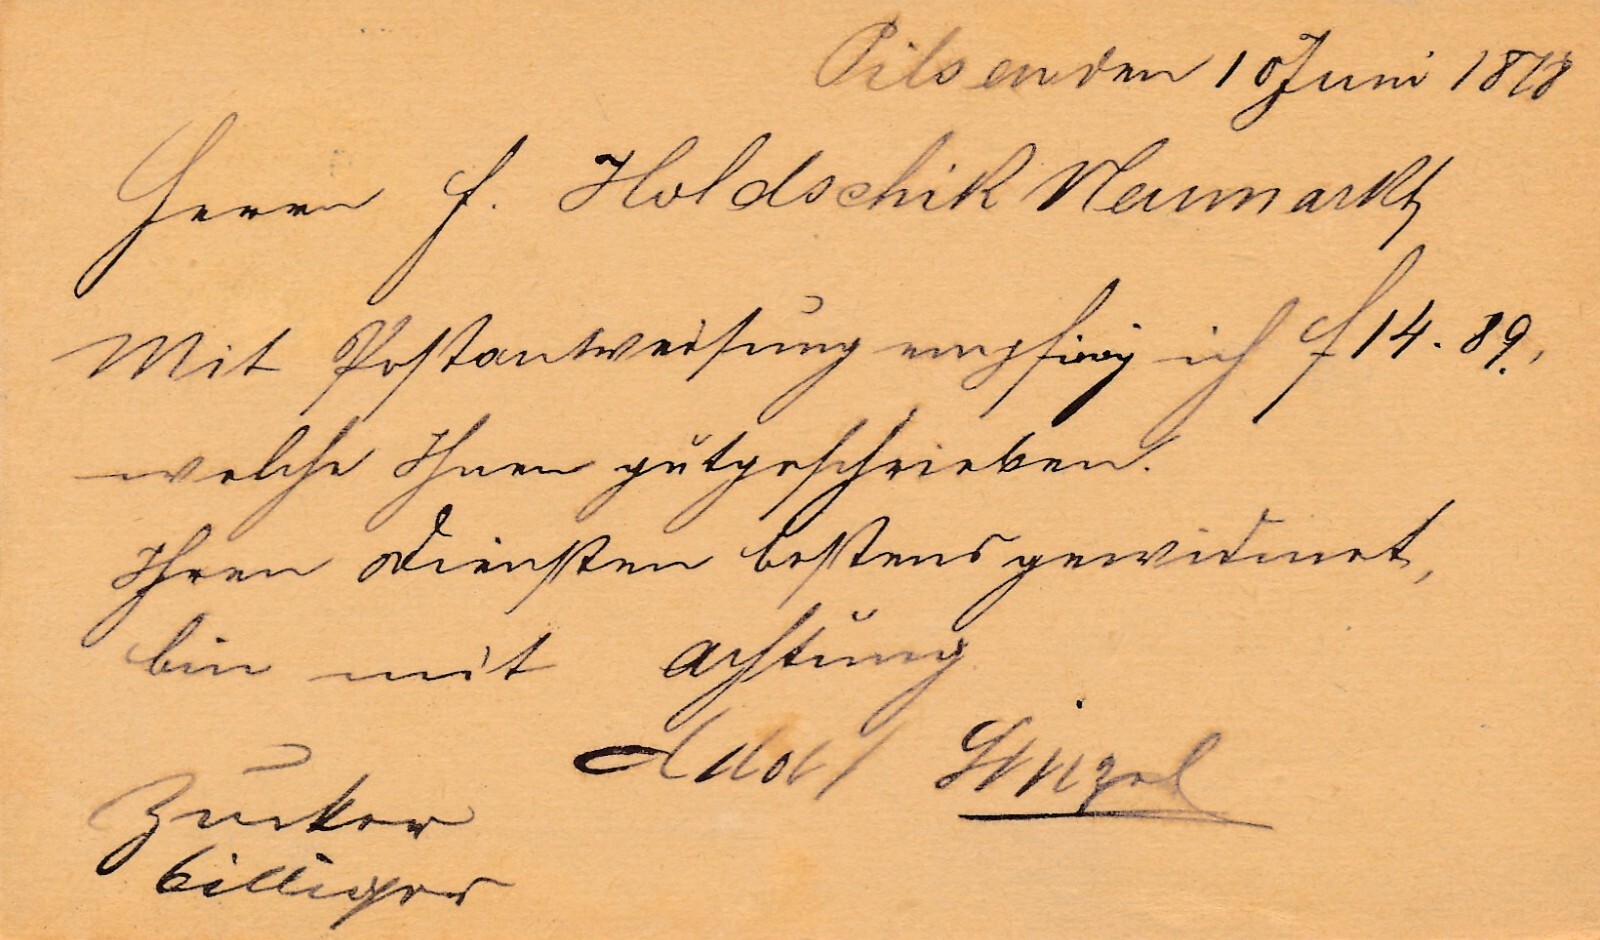 Pilsen den 10 Juni 1878
Herrn F. Holdschik Neumarkt
Mit Postanweisung empfing ich f 14.89.,
welche Ihnen gutgeschrieben.
Ihren Diensten bestens gewidmet,
bin mit Achtung
Adolf
Zucker
billiger